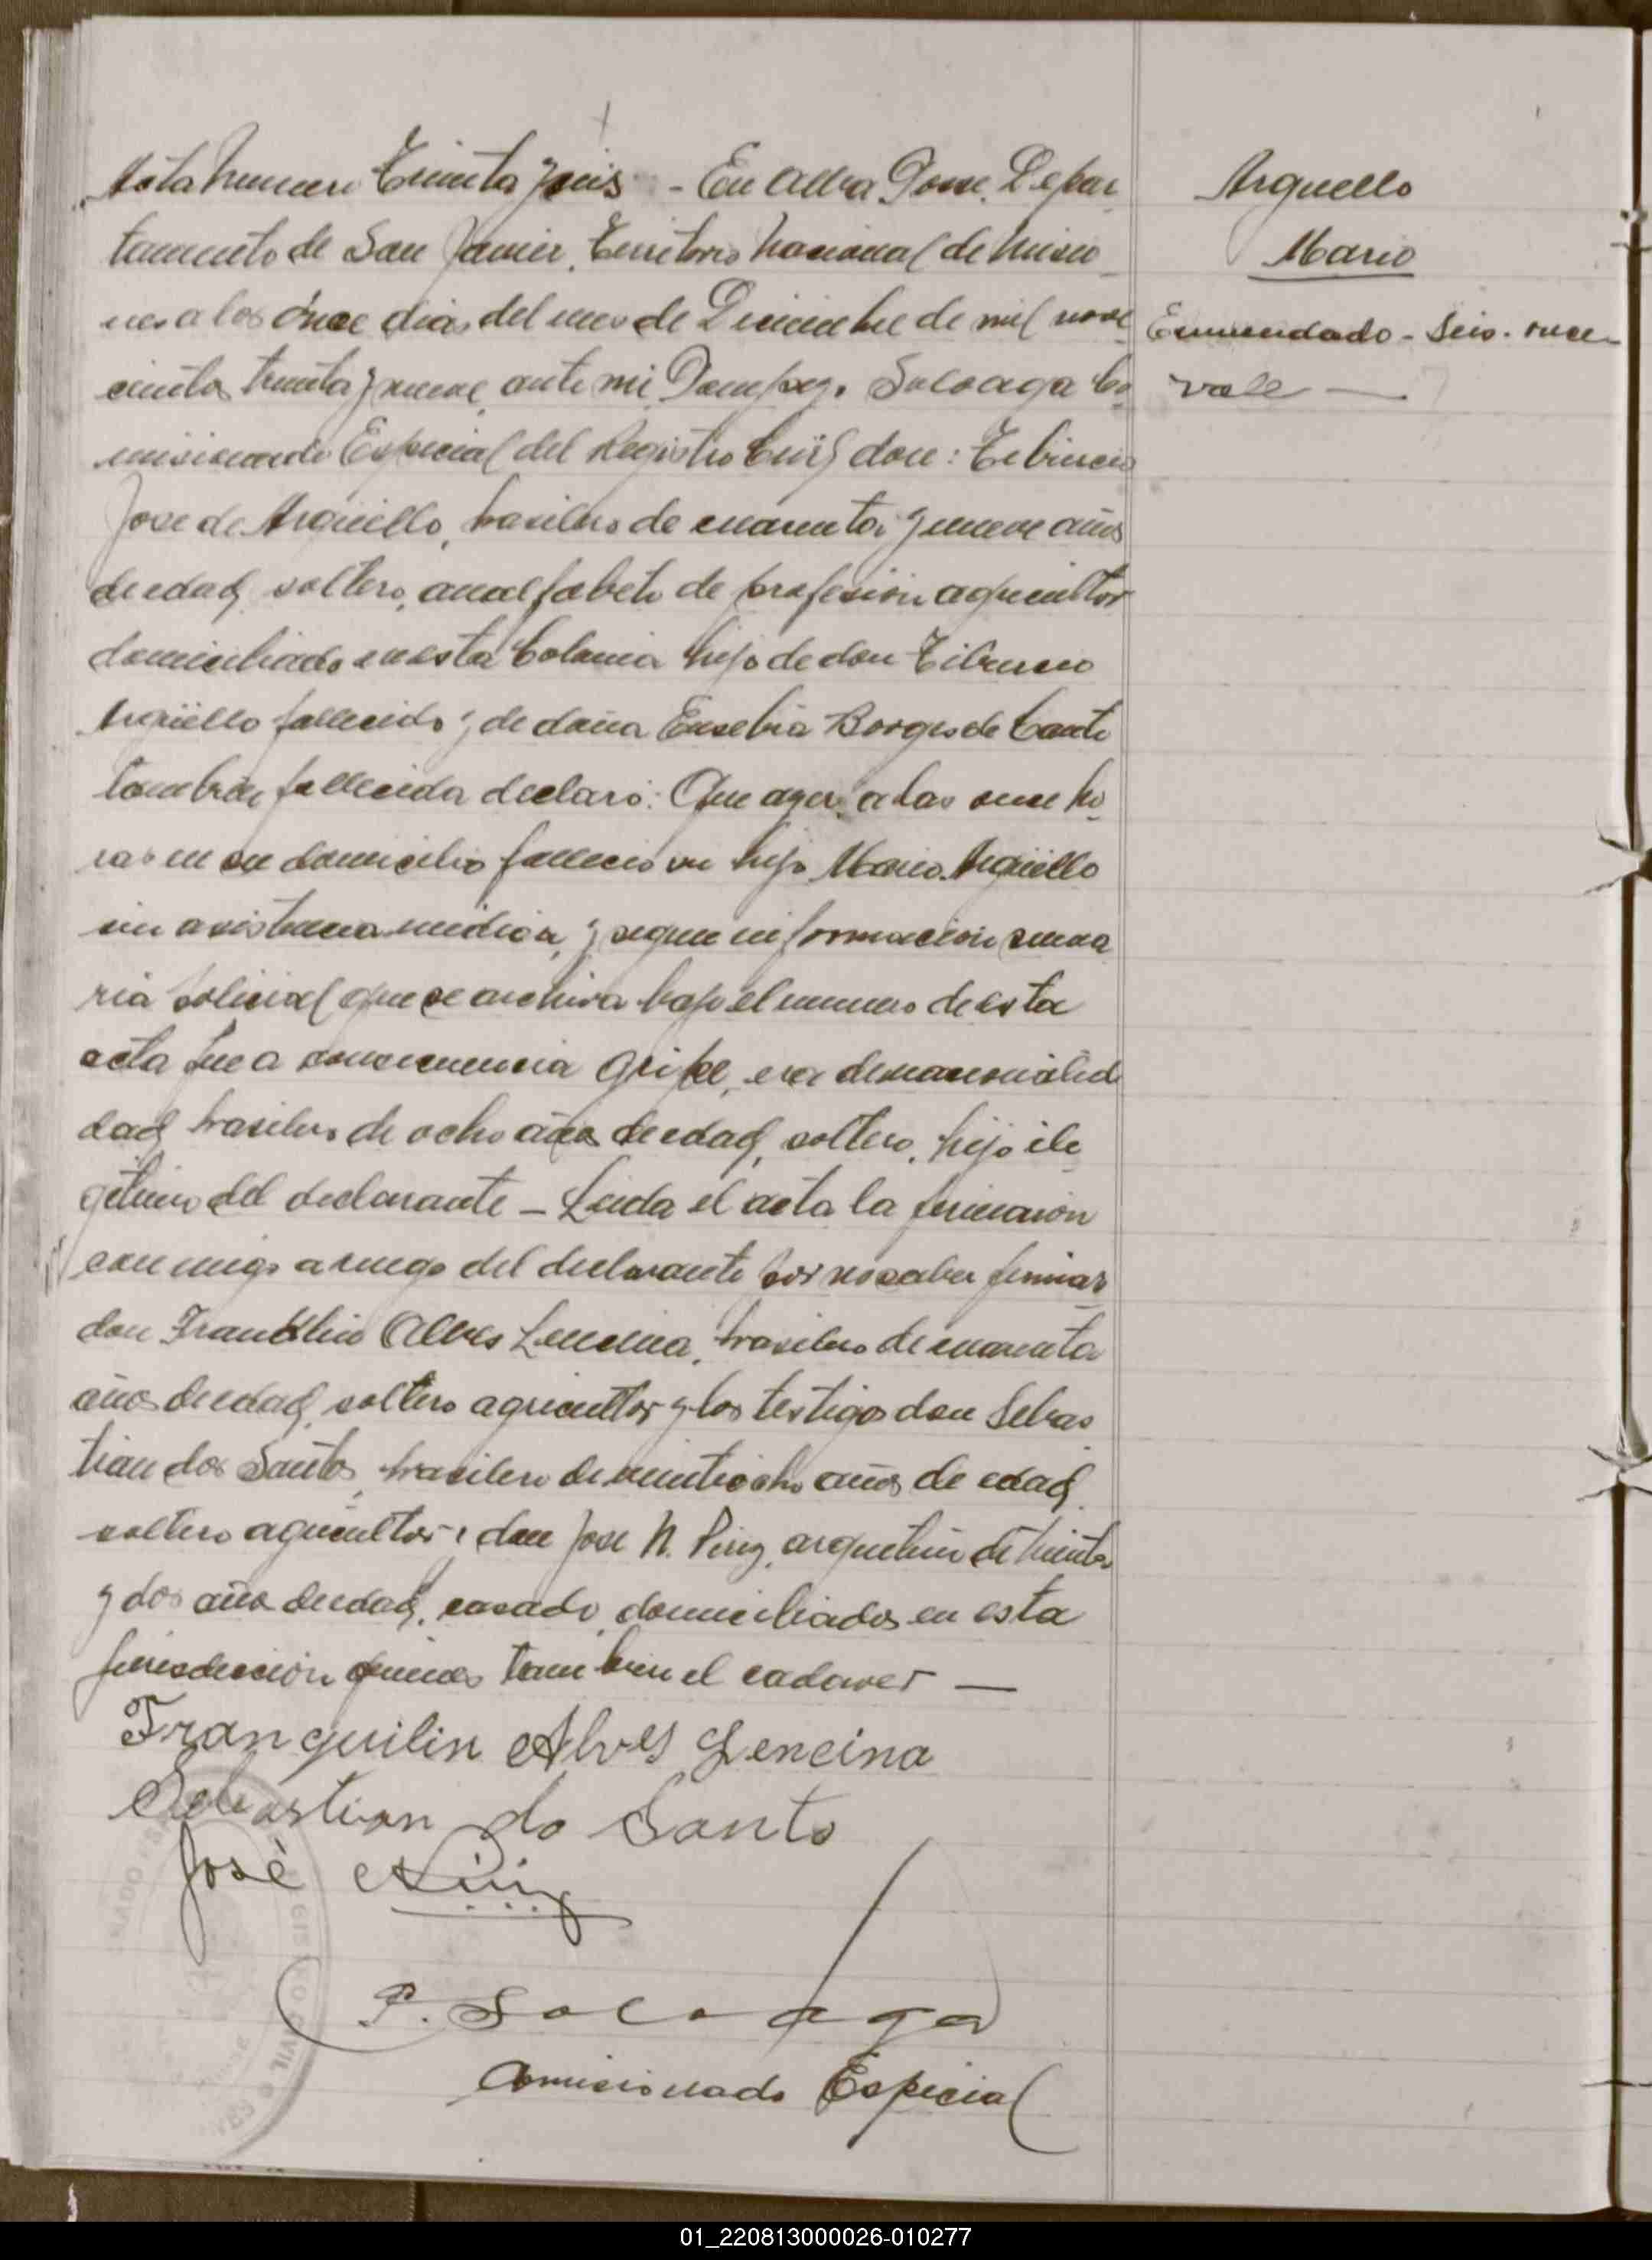 Acta numero Treinta y seis - En Alba Posse, Depar-
tamento de San Javier, Territorio Nacional de Misio-
nes a los once dias del mes de Diciembre de mil nove
cientos treinta y nueve, ante mi, P. Soloaga Co-
misionado Especial del Registro Civil, don: Tiburcio
Jose de Argüello, brasilero de cuarenta y nueve años
de edad, soltero, analfabeto de profesion agricultor
domiciliado en esta Colonia hijo de don Tiburcio
Argüello fallecido y de doña Eusebia Borges de
tambien fallecida declaró: Que ayer a las once ho-
ras en su domicilio fallecio su hijo Mario Argüello
sin asistencia medica, y segun informacion suma
ria policial que se archiva bajo el numero de esta
acta fue a consecuencia gripe, era de nacionalid
dad brasilero de ocho años de edad, soltero, hijo ile-
gitimo del declarante - Leida el acta la firmaron
conmigo a ruego del declarante por no saber firmar
don Franklin Alves Lencina, brasilero de cuarenta
años de edad, soltero agricultor y los testigos don Sebas
tian dos Santos, brasilero de veintiocho años de edad,
soltero agricultor y don Jose N. argentino de treinta
y dos años de edad, casado, domiciliados en esta
jurisdiccion quienes tambien el cadaver —
Tranquilin Alves Lencina
Sebastian do Santo
José
P. Soloaga
Comisionado Especial
Arguello
Mario
Enmendado - Seis - once -
vale —
01_220813000026-010277